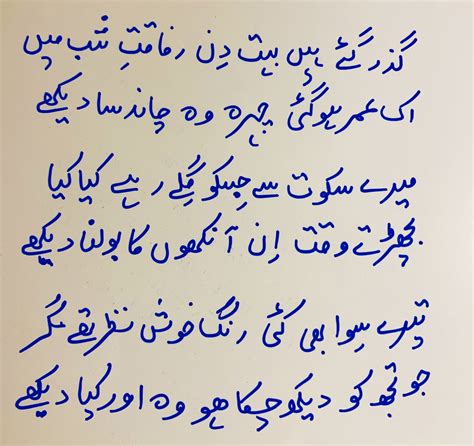 گذر گئے ہیں بہت دِن رفاقتِ شب میں
اک عمر ہو گئی چہرہ وہ چاند سا دیکھے
میرے سکوت سے جِسکو گِلے رہے کیا کیا
بچھڑتے وقت اِن آنکھوں کا بولنا دیکھے
تیرے سِوا بھی کئی رنگ خوش نظر تھے مگر
جو تجھ کو دیکھ چکا ہو وہ اور کیا دیکھے